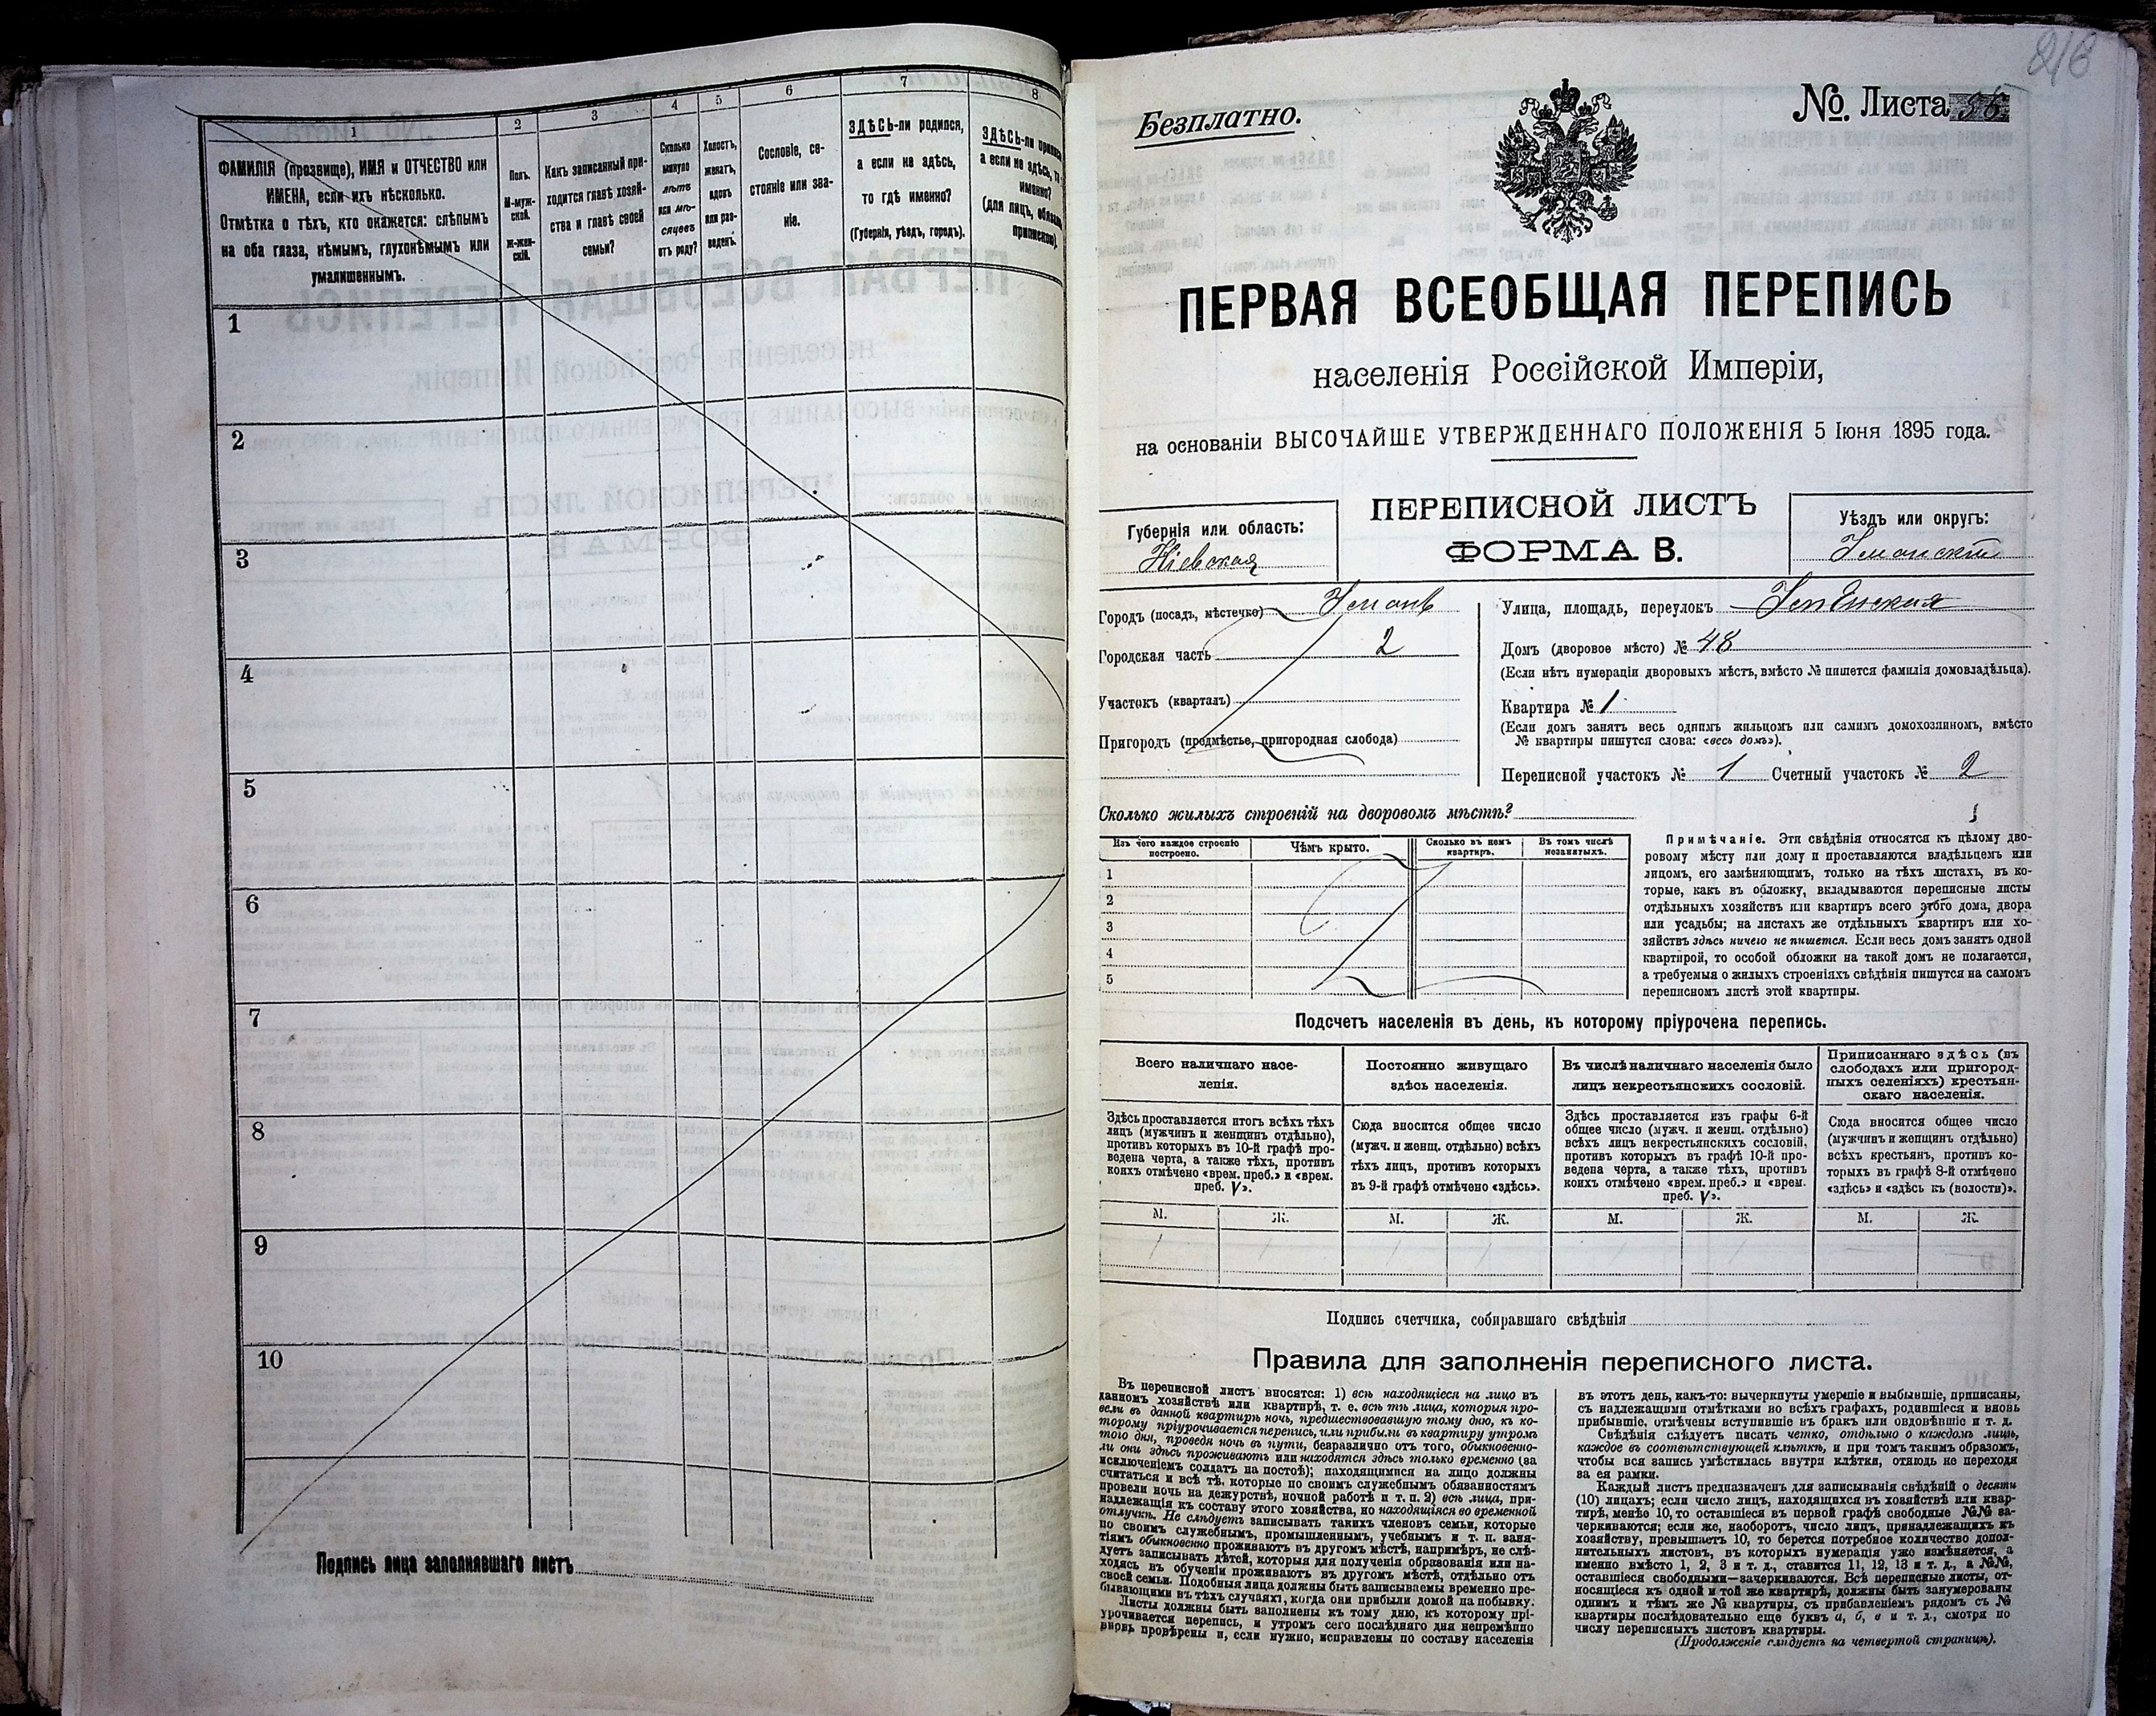 1
2
3
4
5
6
7
8
ФАМИЛІЯ (прозвище), ИМЯ и ОТЧЕСТВО или
ИМЕНА, если ихъ нѣсколько.
Отмѣтка о тѣхъ, кто окажется: слѣпымъ
на оба глаза, нѣмымъ, глухонѣмымъ или
умалишеннымъ.
Полъ.
М-муж-
ской.
Ж-жен-
скій.
Какъ записанный при-
ходится главѣ хозяй-
ства и главѣ своей
семьи?
Сколько
минуло
лѣтъ
или мѣ-
сяцевъ
отъ роду?
Холостъ,
женатъ,
вдовъ
или раз-
веденъ.
Сословіе, со-
стояніе или зва-
ніе.
ЗДѢСЬ-ли родился,
а если не здѣсь,
то гдѣ именно?
(Губернія, уѣздъ, городъ).
ЗДѢСЬ-ли
а если не здѣсь,
именно?
(для лицъ,
припискою).
1
2
3
4
5
6
7
8
9
10
Подпись лица заполнявшаго листъ
Безплатно.
№. Листа
ПЕРВАЯ ВСЕОБЩАЯ ПЕРЕПИСЬ
населенія Россійской Имперіи,
на основаніи ВЫСОЧАЙШЕ УТВЕРЖДЕННАГО ПОЛОЖЕНІЯ 5 Іюня 1895 года.
Губернія или область:
Кіевская
ПЕРЕПИСНОЙ ЛИСТЪ
ФОРМА В.
Уѣздъ или округъ:
Уманскій
Городъ (посадъ, мѣстечко) Умань
Городская часть 2
Участокъ (кварталъ)
Пригородъ (предмѣстье, пригородная слобода)
Улица, площадь, переулокъ Успенская
Домъ (дворовое мѣсто) № 48
(Если нѣтъ нумераціи дворовыхъ мѣстъ, вмѣсто № пишется фамилія домовладѣльца).
Квартира № 1
(Если домъ занятъ весь однимъ жильцомъ или самимъ домохозяиномъ, вмѣсто
№ квартиры пишутся слова: «весь домъ»).
Переписной участокъ № 1 Счетный участокъ № 2
Сколько жилыхъ строеній на дворовомъ мѣстѣ?
Изъ чего каждое строеніе
построено.
Чѣмъ крыто.
Сколько въ немъ
квартиръ.
Въ томъ числѣ
незанятыхъ.
1
2
3
4
5
Примѣчаніе. Эти свѣдѣнія относятся къ цѣлому дво-
ровому мѣсту или дому и проставляются владѣльцемъ или
лицомъ, его замѣняющимъ, только на тѣхъ листахъ, въ ко-
торые, какъ въ обложку, вкладываются переписные листы
отдѣльныхъ хозяйствъ или квартиръ всего этого дома, двора
или усадьбы; на листахъ же отдѣльныхъ квартиръ или хо-
зяйствъ здѣсь ничего не пишется. Если весь домъ занятъ одной
квартирой, то особой обложки на такой домъ не полагается,
а требуемыя о жилыхъ строеніяхъ свѣдѣнія пишутся на самомъ
переписномъ листѣ этой квартиры.
Подсчетъ населенія въ день, къ которому пріурочена перепись.
Всего наличнаго насе-
ленія.
Постоянно живущаго
здѣсь населенія.
Въ числѣ наличнаго населенія было
лицъ некрестьянскихъ сословій.
Приписаннаго здѣсь (въ
слободахъ или пригород-
ныхъ селеніяхъ) крестьян-
скаго населенія.
Здѣсь проставляется итогъ всѣхъ тѣхъ
лицъ (мужчинъ и женщинъ отдѣльно),
противъ которыхъ въ 10-й графѣ про-
ведена черта, а также тѣхъ, противъ
коихъ отмѣчено «врем. преб.» и «врем.
преб. V».
Сюда вносится общее число
(мужч. и женщ. отдѣльно) всѣхъ
тѣхъ лицъ, противъ которыхъ
въ 9-й графѣ отмѣчено «здѣсь».
Здѣсь проставляется изъ графы 6-й
общее число (мужч. и женщ. отдѣльно)
всѣхъ лицъ некрестьянскихъ сословій,
противъ которыхъ въ графѣ 10-й про-
ведена черта, а также тѣхъ, противъ
коихъ отмѣчено «врем. преб.» и «врем.
преб. V».
Сюда вносится общее число
(мужчинъ и женщинъ отдѣльно)
всѣхъ крестьянъ, противъ ко-
торыхъ въ графѣ 8-й отмѣчено
«здѣсь» и «здѣсь къ (волости)».
М. Ж. М. Ж. М. Ж. М. Ж.
1 1 1 1 1 1 — —
Подпись счетчика, собиравшаго свѣдѣнія
Правила для заполненія переписного листа.
Въ переписной листъ вносятся: 1) всѣ находящіеся на лицо въ
данномъ хозяйствѣ или квартирѣ, т. е. всѣ тѣ лица, которыя про-
вели въ данной квартирѣ ночь, предшествовавшую тому дню, къ ко-
торому пріурочивается перепись, или прибыли въ квартиру утромъ
того дня, проведя ночь въ пути, безразлично отъ того, обыкновенно-
ли они здѣсь проживаютъ или находятся здѣсь только временно (за
исключеніемъ солдатъ на постоѣ); находящимися на лицо должны
считаться и всѣ тѣ, которые по своимъ служебнымъ обязанностямъ
провели ночь на дежурствѣ, ночной работѣ и т. п. 2) всѣ лица, при-
надлежащія къ составу этого хозяйства, но находящіяся во временной
отлучкѣ. Не слѣдуетъ записывать такихъ членовъ семьи, которые
по своимъ служебнымъ, промышленнымъ, учебнымъ и т. п. заня-
тіямъ обыкновенно проживаютъ въ другомъ мѣстѣ, напримѣръ, не слѣ-
дуетъ записывать дѣтей, которыя для полученія образованія или на-
ходясь въ обученіи проживаютъ въ другомъ мѣстѣ, отдѣльно отъ
своей семьи. Подобныя лица должны быть записываемы временно пре-
бывающими въ тѣхъ случаяхъ, когда они прибыли домой на побывку.
Листы должны быть заполнены къ тому дню, къ которому прі-
урочивается перепись, и утромъ сего послѣдняго дня непремѣнно
вновь провѣрены и, если нужно, исправлены по составу населенія
въ этотъ день, какъ-то: вычеркнуты умершіе и выбывшіе, приписаны,
съ надлежащими отмѣтками во всѣхъ графахъ, родившіеся и вновь
прибывшіе, отмѣчены вступившіе въ бракъ или овдовѣвшіе и т. д.
Свѣдѣнія слѣдуетъ писать четко, отдѣльно о каждомъ лицѣ,
каждое въ соотвѣтствующей клѣткѣ, и при томъ такимъ образомъ,
чтобы вся запись умѣстилась внутри клѣтки, отнюдь не переходя
за ея рамки.
Каждый листъ предназначенъ для записыванія свѣдѣній о десяти
(10) лицахъ; если число лицъ, находящихся въ хозяйствѣ или квар-
тирѣ, менѣе 10, то оставшіеся въ первой графѣ свободные №№ за-
черкиваются; если же, наоборотъ, число лицъ, принадлежащихъ къ
хозяйству, превышаетъ 10, то берется потребное количество допол-
нительныхъ листовъ, въ которыхъ нумерація уже измѣняется, а
именно вмѣсто 1, 2, 3 и т. д., ставится 11, 12, 13 и т. д., а №№,
оставшіеся свободными—зачеркиваются. Всѣ переписные листы, от-
носящіеся къ одной и той же квартирѣ, должны быть занумерованы
однимъ и тѣмъ же № квартиры, съ прибавленіемъ рядомъ съ №
квартиры послѣдовательно еще буквъ а, б, в и т. д., смотря по
числу переписныхъ листовъ квартиры.
(Продолженіе слѣдуетъ на четвертой страницѣ).